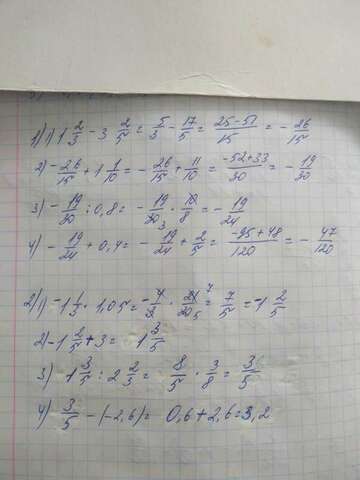 1) 1) 1 2/3 - 3 2/5 = 5/3 - 17/5 = (25-51)/15 = - 26/15
2) - 26/15 + 1 1/10 = - 26/15 + 11/10 = (-52+33)/30 = - 19/30
3) - 19/30 : 0,8 = - 19/30 3 · 10/8 = - 19/24
4) - 19/24 + 0,4 = - 19/24 + 2/5 = (-95+48)/120 = - 47/120
2) 1) -1 1/3 · 1,05 = - 4/3 · 21/20 7 5 = 7/5 = -1 2/5
2) -1 2/5 + 3 = 1 3/5
3) 1 3/5 : 2 2/3 = 8/5 · 3/8 = 3/5
4) 3/5 - (-2,6) = 0,6 + 2,6 = 3,2